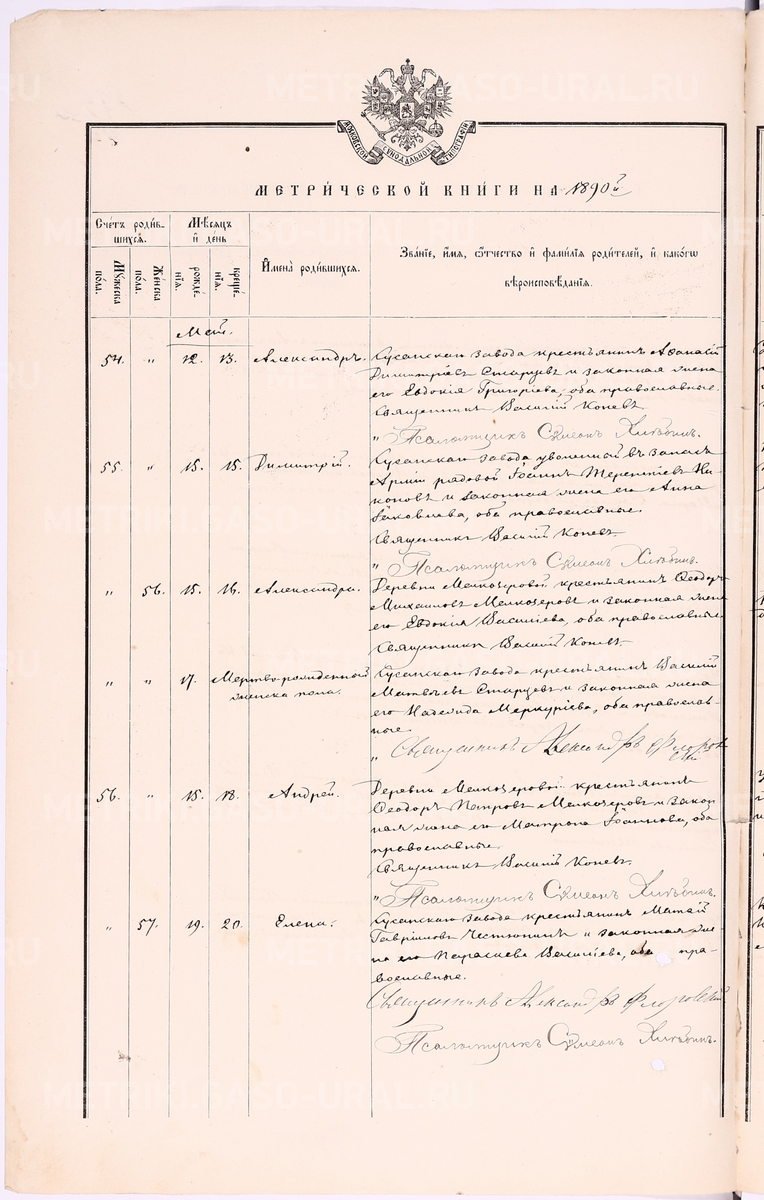 МОСКОВСКОЙ СѴНОДАЛЬНОЙ ТИПОГРАФІИ
МЕТРИ́ЧЕСКОЙ КНИ́ГИ НА 1890й
Сче́тъ роди́в-
шихсѧ.
Мѣ́сѧцъ
и҆ день
Мꙋ́жеска по́ла.
Же́нска по́ла.
рожде́-нїѧ.
креще́-нїѧ.
И҆мена̀ роди́вшихсѧ.
Зва́нїе, и҆́мѧ, ѻ҆́тчество и҆ фами́лїѧ роди́телей, и҆ како́гѡ
вѣроисповѣ́данїѧ.
Май.
54. " 12. 13. Александръ. Сусанскаго завода крестьянинъ Афанасій
Димитріевъ Старцевъ и законная жена
его Евдокія Григоріева, оба православные.
Священникъ Василій Коневъ.
" Псаломщикъ Сѵмеонъ Хлѣбинъ.
55. " 15. 15. Димитрій. Сусанскаго завода уволенной въ запасъ
Арміи рядовой Іоаннъ Терентіевъ Ни-
коновъ и законная жена его Анна
Іаковлева, оба православные.
Священникъ Василій Коневъ.
" Псаломщикъ Сѵмеонъ Хлѣбинъ.
" 56. 15. 16. Александра. Деревни Мелкозеровой крестьянинъ Ѳеодоръ
Михаиловъ Мелкозеровъ и законная жена
его Евдокія Василіева, оба православные.
Священникъ Василій Коневъ.
" " 17. Мертворожденный Сусанскаго завода крестьянинъ Василій
женска пола. Матвѣевъ Старцевъ и законная жена
его Надежда Меркуріева, оба православ-
ные.
" Священникъ Александръ Флоров-
скій
56. " 15. 18. Андрей. Деревни Мелкозеровой крестьянинъ
Ѳеодоръ Петровъ Мелкозеровъ и закон-
ная жена его Матрона Іоаннова, оба
православные.
Священникъ Василій Коневъ.
" Псаломщикъ Сѵмеонъ Хлѣбинъ.
" 57. 19. 20. Елена. Сусанскаго завода крестьянинъ
Гавріиловъ Честюнинъ и законная же-
на его Параскева Василіева, оба пра-
вославные.
Священникъ Александръ Флоровскій
Псаломщикъ Сѵмеонъ Хлѣбинъ.
METRIKI.GASO-URAL.RU